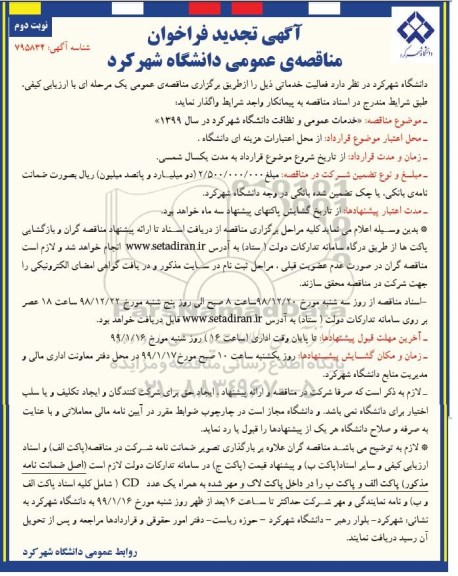 نوبت دوم
آگهی تجدید فراخوان
مناقصه‌ی عمومی دانشگاه شهرکرد
شناسه آگهی: ۷۹۵۸۳۴
دانشگاه شهرکرد در نظر دارد فعالیت خدماتی ذیل را ازطریق برگزاری مناقصه‌ی عمومی یک مرحله ای با ارزیابی کیفی،
طبق شرایط مندرج در اسناد مناقصه به پیمانکار واجد شرایط واگذار نماید:
ـ موضوع مناقصه: «خدمات عمومی و نظافت دانشگاه شهرکرد در سال ۱۳۹۹»
ـ محل اعتبار موضوع قرارداد: از محل اعتبارات هزینه ای دانشگاه .
ـ زمان و مدت قرارداد: از تاریخ شروع موضوع قرارداد به مدت یکسال شمسی.
ـ مبلغ و نوع تضمین شرکت در مناقصه: مبلغ ۲/۵۰۰/۰۰۰/۰۰۰ (دو میلیارد و پانصد میلیون) ریال بصورت ضمانت
نامه‌ی بانکی، یا چک تضمین شده بانکی در وجه دانشگاه شهرکرد.
ـ مدت اعتبار پیشنهادها: از تاریخ گشایش پاکتهای پیشنهاد سه ماه خواهد بود.
* بدین وسیله اعلام می نماید کلیه مراحل برگزاری مناقصه از دریافت اسناد تا ارائه پیشنهاد مناقصه گران و بازگشایی
پاکت ها از طریق درگاه سامانه تدارکات دولت ( ستاد) به آدرس www.setadiran.ir انجام خواهد شد و لازم است
مناقصه گران در صورت عدم عضویت قبلی ، مراحل ثبت نام در سایت مذکور و در یافت گواهی امضای الکترونیکی را
جهت شرکت در مناقصه محقق سازند.
-اسناد مناقصه از روز سه شنبه مورخ ۹۸/۱۲/۲۰ ساعت ۸ صبح الی روز پنج شنبه مورخ ۹۸/۱۲/۲۲ ساعت ۱۸ عصر
بر روی سامانه تدارکات دولت ( ستاد) به آدرس www.setadiran.ir قابل دریافت خواهد بود.
ـ آخرین مهلت قبول پیشنهادها: تا پایان وقت اداری (ساعت ۱۶ ) روز شنبه مورخ ۹۹/۱/۱۶
ـ زمان و مکان گشایش پیشنهادها: روز یکشنبه ساعت ۱۰ صبح مورخ ۹۹/۱/۱۷ در محل دفتر معاونت اداری مالی و
مدیریت منابع دانشگاه شهرکرد.
ـ لازم به ذکر است که صرفا شرکت در مناقصه و ارائه پیشنهاد ، ایجاد حق برای شرکت کنندگان و ایجاد تکلیف و یا سلب
اختیار برای دانشگاه نمی باشد. و دانشگاه مجاز است در چارچوب ضوابط مقرر در آیین نامه مالی معاملاتی و با عنایت
به صرفه و صلاح دانشگاه هر یک از پیشنهادها را قبول یا رد نماید.
* لازم به توضیح می باشد مناقصه گران علاوه بر بارگذاری تصویر ضمانت نامه شرکت در مناقصه(پاکت الف) و اسناد
ارزیابی کیفی و سایر اسناد(پاکت ب) و پیشنهاد قیمت (پاکت ج) در سامانه تدارکات دولت لازم است (اصل ضمانت نامه
مذکور) پاکت الف و پاکت ب را در داخل پاکت لاک و مهر شده به همراه یک عدد CD ( شامل کلیه اسناد پاکت الف
و ب) و نامه نمایندگی و مهر شرکت حداکثر تا ساعت ۱۶بعد از ظهر روز شنبه مورخ ۹۹/۱/۱۶ به دانشگاه شهرکرد به
نشانی: شهرکرد- بلوار رهبر – دانشگاه شهرکرد – حوزه ریاست- دفتر امور حقوقی و قراردادها مراجعه و پس از تحویل
آن رسید دریافت نمایند.
روابط عمومی دانشگاه شهرکرد